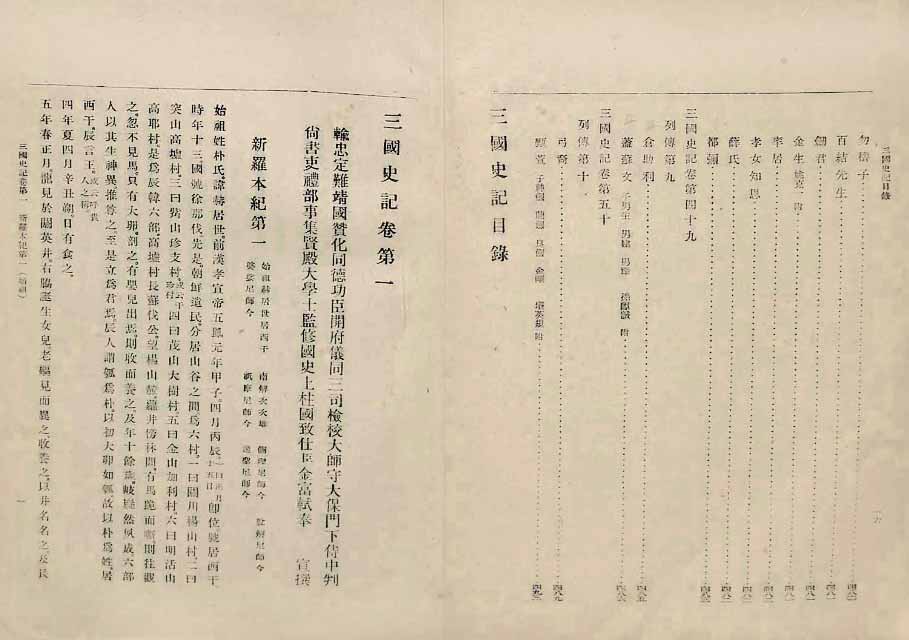 三國史記目錄
勿稽子
百結先生
劍君
金生 姚克一 附
率居
孝女知恩
薛氏
都彌
三國史記卷第四十九
列傳第九
倉助利
蓋蘇文 子男生 男建 男產 孫獻誠 附
三國史記卷第五十
列傳第十
弓裔
甄萱 子神劍 龍劍 良劍 金剛 壻英規 附
三國史記目錄
三國史記卷第一
輸忠定難靖國贊化同德功臣開府儀同三司檢校大師守大保門下侍中判
尙書吏禮部事集賢殿大學士監修國史上柱國致仕臣金富軾奉 宣撰
新羅本紀第一
始祖赫居世居西干 南解次次雄 儒理尼師今 脫解尼師今
婆娑尼師今 祇摩尼師今 逸聖尼師今
始祖姓朴氏、諱赫居世、前漢孝宣帝五鳳元年甲子、四月丙辰、一曰正月十五日卽位、號居西干、
時年十三、國號徐那伐、先是、朝鮮遺民、分居山谷之間爲六村、一曰閼川楊山村、二曰
突山高墟村、三曰觜山珍支村、或云干珍村四曰茂山大樹村、五曰金山加利村、六曰明活山
高耶村、是爲辰韓六部、高墟村長蘇伐公、望楊山麓、蘿井傍林間、有馬跪而嘶、則往觀
之、忽不見馬、只有大卵、剖之、有嬰兒出焉、則收而養之、及年十餘歲、岐嶷然夙成、六部
人以其生神異、推尊之、至是立爲君焉、辰人謂瓠爲朴、以初大卵如瓠、故以朴爲姓、居
西干、辰言王、或云呼貴人之稱
四年、夏四月辛丑朔、日有食之、
五年、春正月、龍見於閼英井、右脇誕生女兒、老嫗見而異之、收養之、以井名名之、及長
三國史記卷第一 新羅本紀第一（始祖） 一